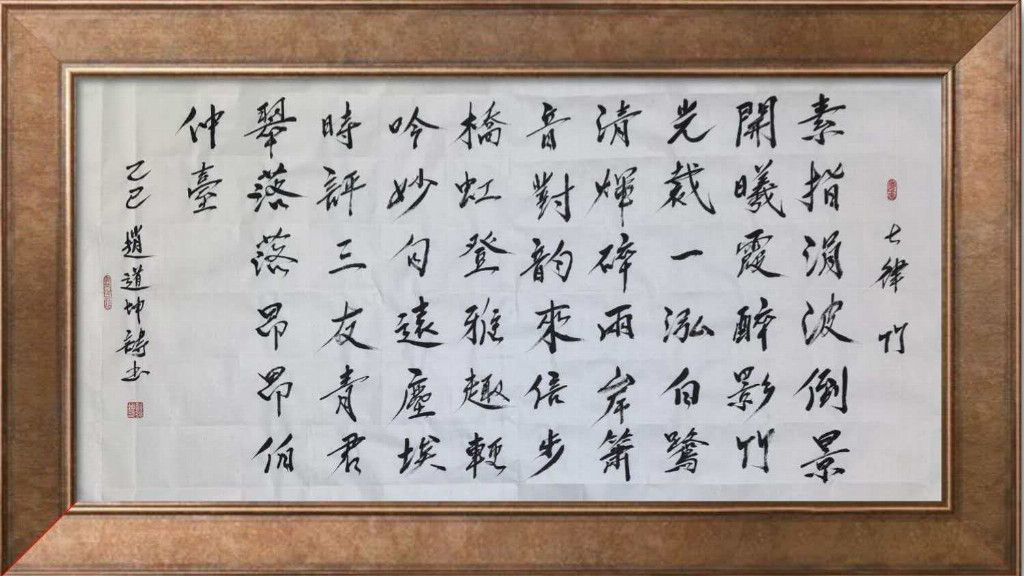 七律 竹
素指涓波倒景
開曦霞醉影竹
光裁一泓白鷺
清輝碎兩岸簫
音對韵來信步
橋虹登雅趣輕
吟妙句遠塵埃
時評三友青君
翠落落昂昂伯
仲臺
乙巳 趙道坤詩書